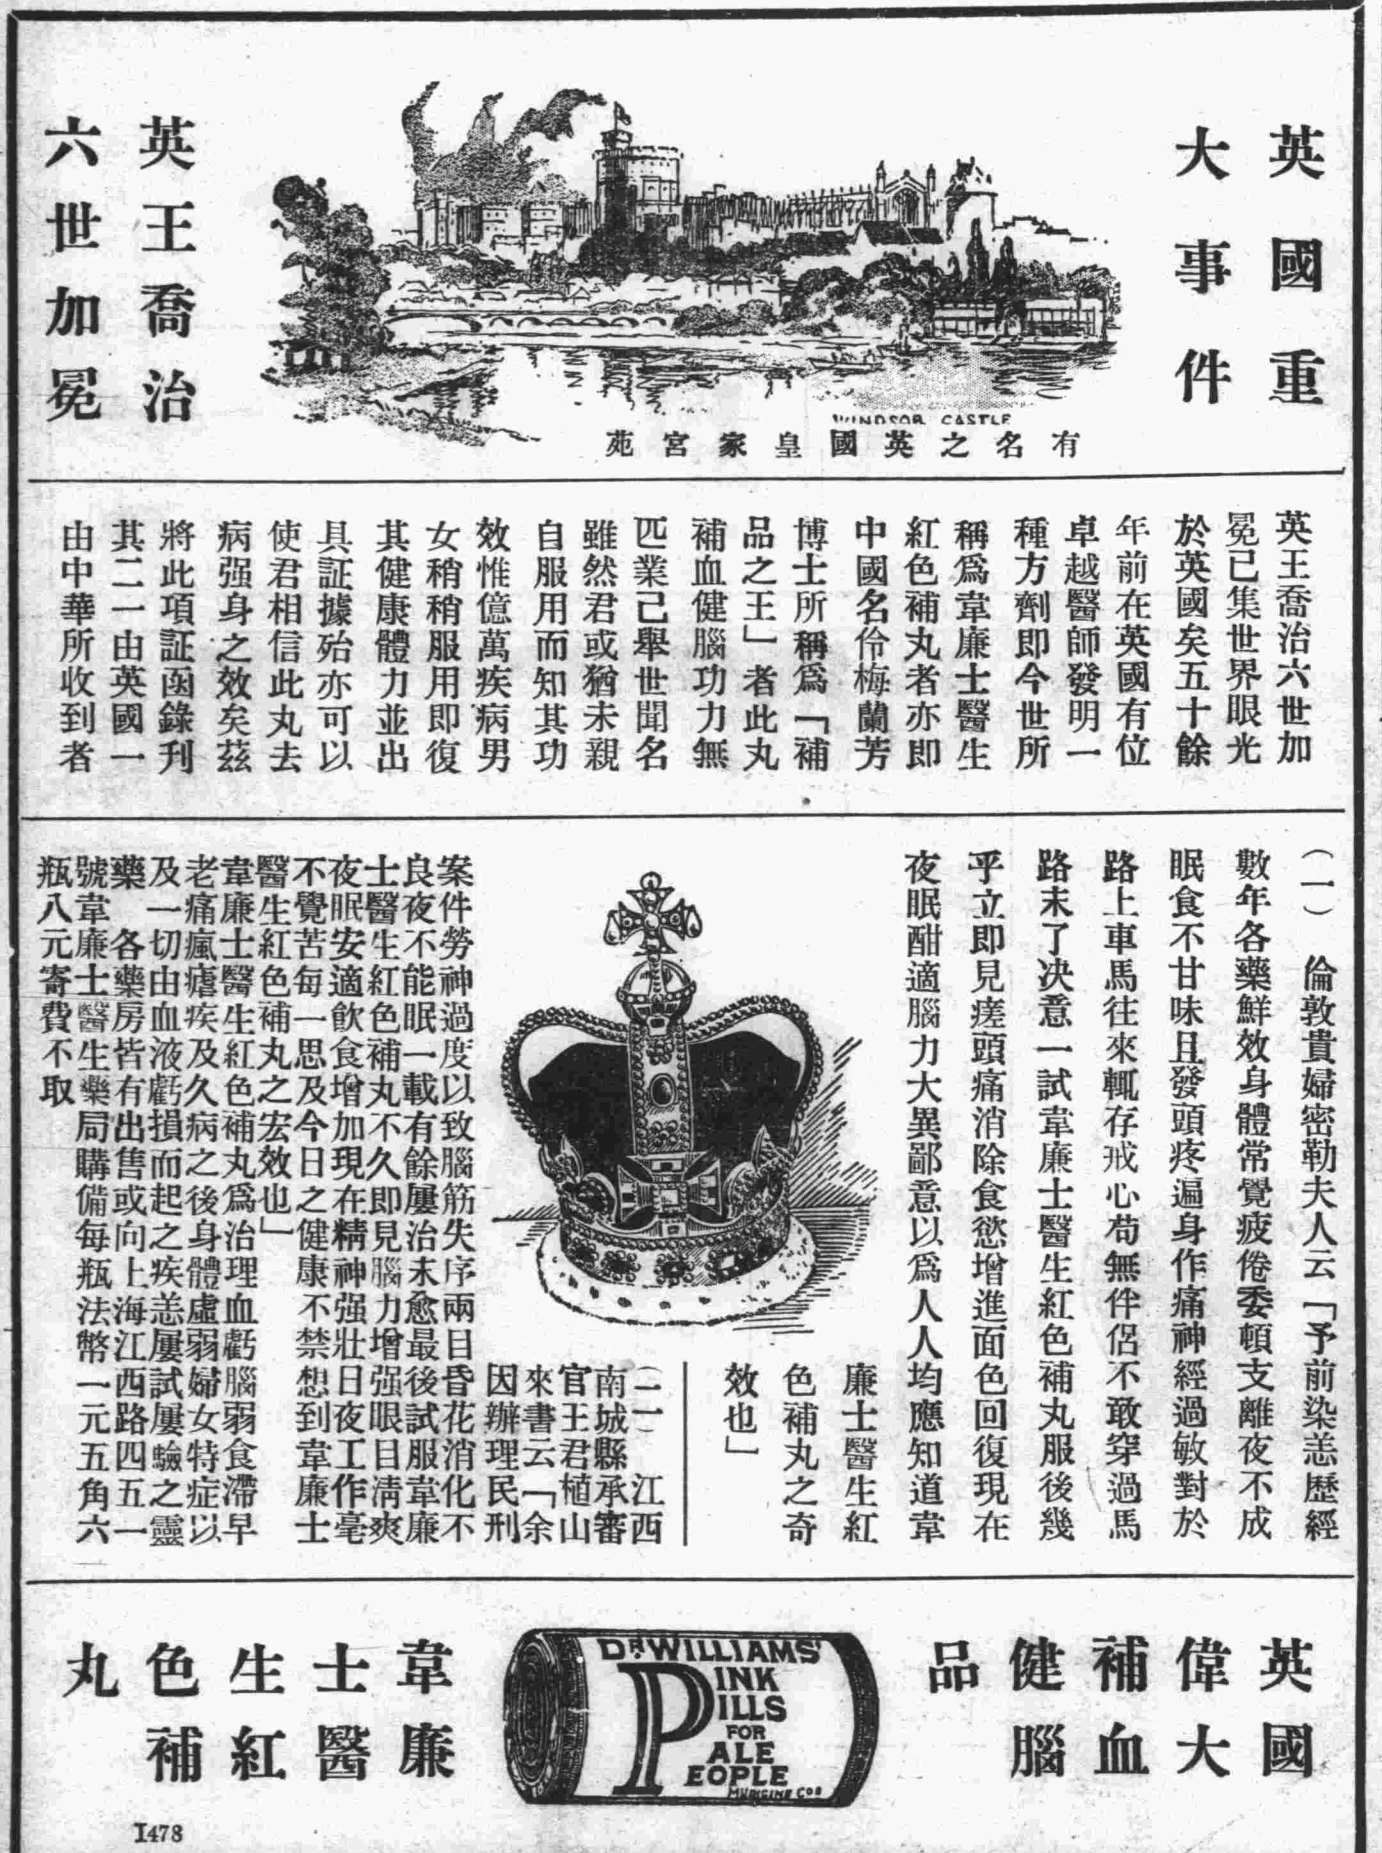 英國重
大事件
英王喬治
六世加冕
WINDSOR CASTLE
有名之英國皇家宮苑
英王喬治六世加
冕已集世界眼光
於英國矣五十餘
年前在英國有位
卓越醫師發明一
種方劑即今世所
稱爲韋廉士醫生
紅色補丸者亦即
中國名伶梅蘭芳
博士所稱爲「補
品之王」者此丸
補血健腦功力無
匹業已舉世聞名
雖然君或猶未親
自服用而知其功
效惟億萬疾病男
女稍稍服用即復
其健康體力並出
具証據殆亦可以
使君相信此丸去
病强身之效矣茲
將此項証函錄刋
其二一由英國一
由中華所收到者
(一)倫敦貴婦密勒夫人云「予前染恙歷經
數年各藥鮮效身體常覺疲倦委頓支離夜不成
眠食不甘味且發頭疼遍身作痛神經過敏對於
路上車馬往來輒存戒心苟無伴侶不敢穿過馬
路末了决意一試韋廉士醫生紅色補丸服後幾
乎立即見瘥頭痛消除食慾增進面色回復現在
夜眠酣適腦力大異鄙意以爲人人均應知道韋
廉士醫生紅
色補丸之奇
效也」
(二)江西
南城縣承審
官王君植山
來書云「余
因辦理民刑
案件勞神過度以致腦筋失序兩目昏花消化不
良夜不能眠一載有餘屢治未愈最後試服韋廉
士醫生紅色補丸不久即見腦力增强眼目淸爽
夜眠安適飲食增加現在精神强壯日夜工作毫
不覺苦每一思及今日之健康不禁想到韋廉士
醫生紅色補丸之宏效也」
韋廉士醫生紅色補丸爲治理血虧腦弱食滯早
老痛瘋瘧疾及久病之後身體虛弱婦女特症以
及一切由血液虧損而起之疾恙屢試屢驗之靈
藥 各藥房皆有出售或向上海江西路四五一
號韋廉士醫生藥局購備每瓶法幣一元五角六
瓶八元寄費不取
英國
偉大
補血
健腦
品
DR. WILLIAMS'
PINK
PILLS
FOR
PALE
PEOPLE
韋廉
士醫
生紅
色補
丸
1478